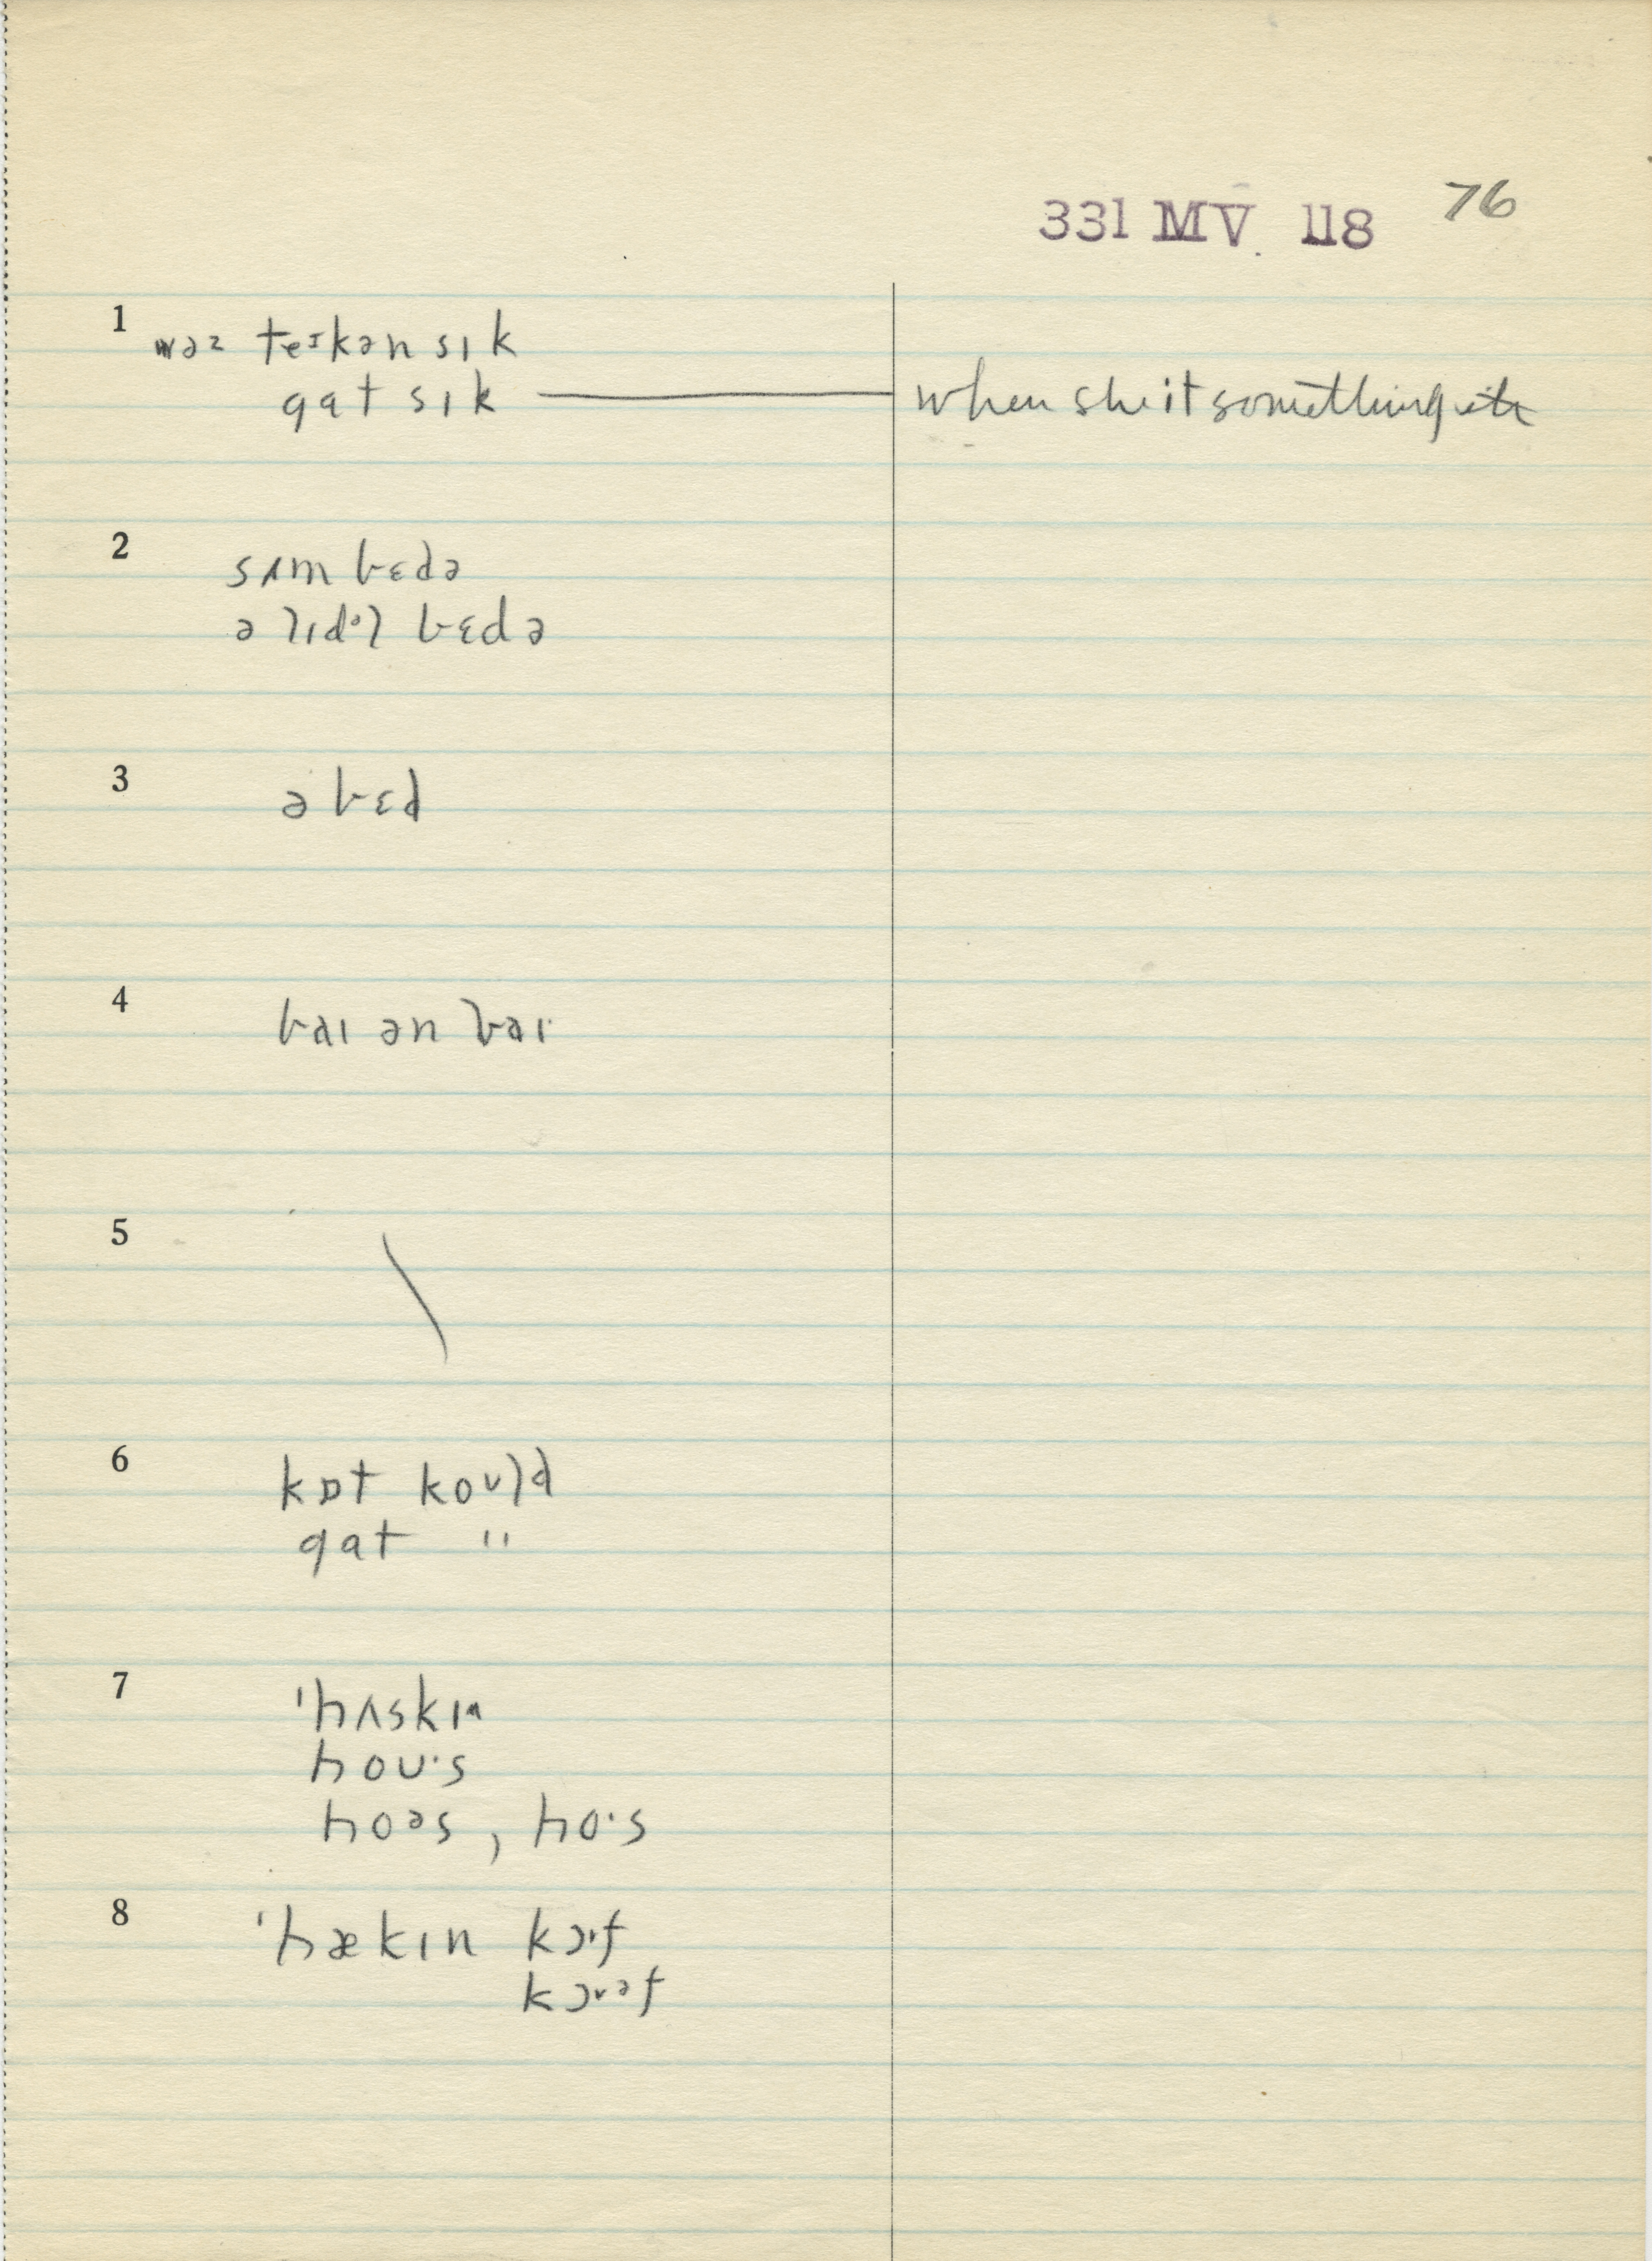 331 MV. 118 76
1 wəz teɪkən sɪk
gat sɪk — when she it something
2 sʌm bɛdə
ə lɪdl̩ bɛdə
3 ə bɛd
4 baɪ ən baɪ
5 \
6 kɒt koʊld
gat "
7 ˈhʌskɪn
hoʊ·s
hoəs, ho·s
8 ˈhækɪn kɔ·f
kɔᵊf